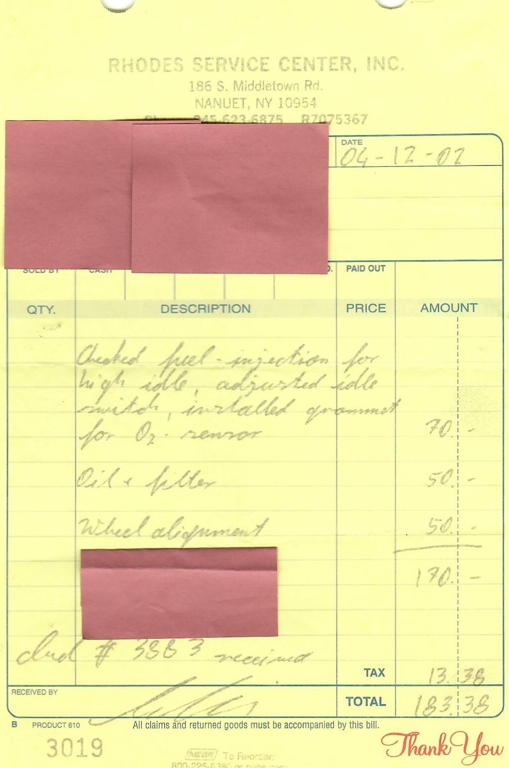 RHODES SERVICE CENTER, INC.
186 S. Middletown Rd.
NANUET, NY 10954
845-623-6875 R7075367
DATE
04-12-02
SOLD BY CASH PAID OUT
QTY. DESCRIPTION PRICE AMOUNT
Checked fuel-injection for
high idle, adjusted idle
switch, installed grommet
for O2-sensor 70.-
Oil + filter 50.-
Wheel alignment 50.-
170.-
# 3383 received
TAX 13.38
RECEIVED BY
TOTAL 183.38
B PRODUCT 610 All claims and returned goods must be accompanied by this bill.
3019
To Reorder:
Thank You